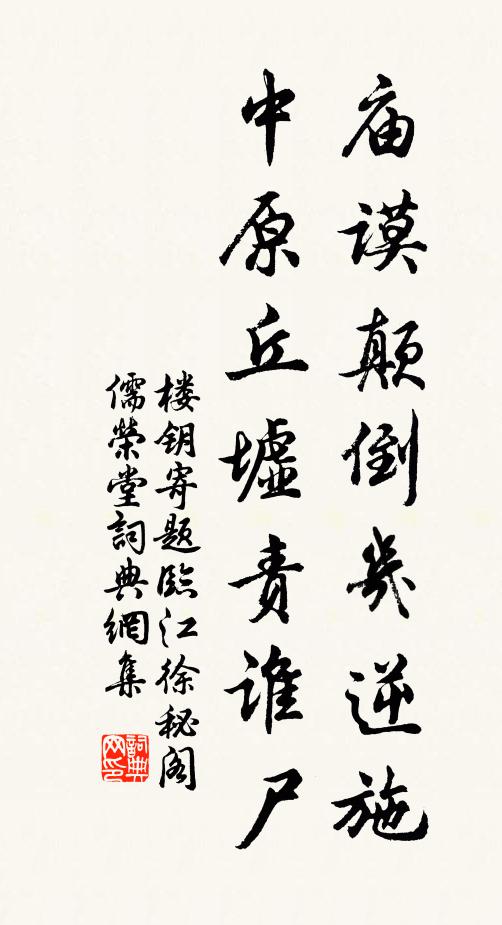 庙谟颠倒几逆施
中原丘墟责谁尸
楼钥寄题临江徐秘阁
儒荣堂詞典網集
詞典
网印